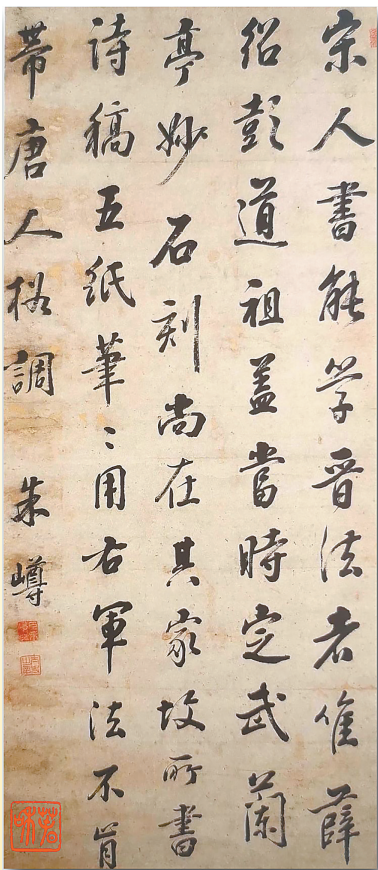 宋人書能学晋法者隹薛
紹彭道祖盖當時定武蘭
亭妙石刻尚在其家故所書
詩稿五紙筆〻用右軍法不肯
帶唐人格調
朱嶟